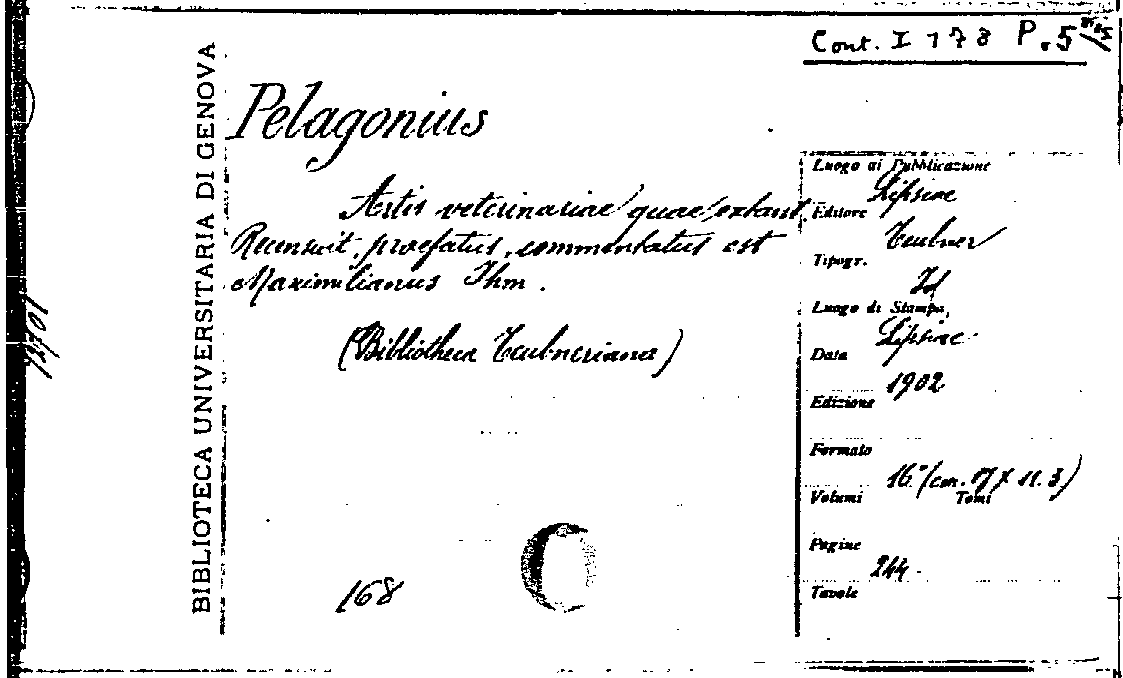 Cont. I 178 P. 5
BIBLIOTECA UNIVERSITARIA DI GENOVA
Pelagonius
Artis veterinariae quae extant.
Recensuit, praefatus, commentatus est
Maximilianus Ihm.
(Bibliotheca Teubneriana)
168
Luogo di Pubblicazione
Lipsiae
Editore
Teubner
Tipogr.
Id
Luogo di Stampa,
Lipsiae
Data
1902
Edizione
Formato
16° (cm. 17 x 11.3)
Volumi Tomi
Pagine
244.
Tavole